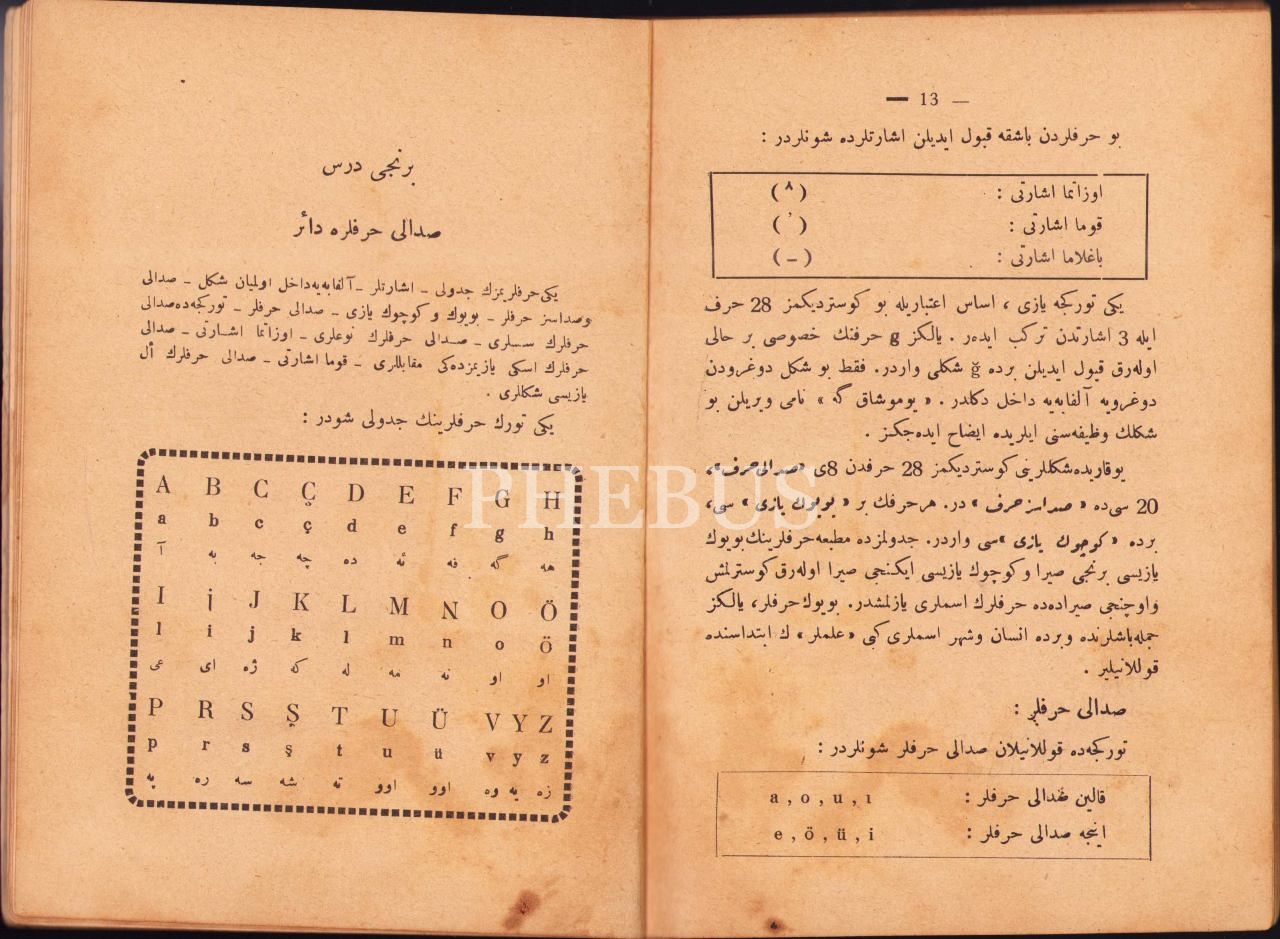 برنجی درس
صدالی حرفلره دائر
یکی حرفلریمزك جدولی ـ اشارتلر ـ آلفابه‌یه داخل اولمیان شکل ـ صدالی
وصداسز حرفلر ـ بویوك و کوچوك یازی ـ صدالی حرفلر ـ تورکجه‌ده صدالی
حرفلرك سسلری ـ صدالی حرفلرك نوعلری ـ اوزاتما اشارتی ـ صدالی
حرفلرك اسکی یازیمزده‌کی مقابللری ـ قوما اشارتی ـ صدالی حرفلرك أل
یازیسی شکللری .
یکی تورك حرفلرینك جدولی شودر :
A B C Ç D E F G H
a b c ç d e f g h
آ به جه چه ده ئه فه گه هه
I İ J K L M N O Ö
ı i j k l m n o ö
عی ای ژه که له مه نه او او
P R S Ş T U Ü V Y Z
p r s ş t u ü v y z
په ره سه شه ته اوو اوو وه یه زه
PHEBUS
— 13 —
بو حرفلردن باشقه قبول ایدیلن اشارتلرده شونلردر :
اوزاتما اشارتی : (^)
قوما اشارتی : (’)
باغلاما اشارتی : (-)
یکی تورکجه یازی ، اساس اعتباریله بو کوستردیکمز 28 حرف
ایله 3 اشارتدن ترکب ایدەر . یالکز g حرفنك خصوصی بر حالی
اوله‌رق قبول ایدیلن برده ğ شکلی واردر. فقط بو شکل دوغرودن
دوغرویه آلفابه‌یه داخل دکلدر . « یوموشاق گه » نامی ویریلن بو
شکلك وظیفه‌سنی ایلریده ایضاح ایده‌جکز .
یوقاریده شکللرینی کوستردیکمز 28 حرفدن 8ی «صدالی حرف»،
20 سی ده « صداسز حرف » در. هر حرفك بر « بویوك یازی » سی،
برده « کوچوك یازی »سی واردر. جدولمزده مطبعه حرفلرینك بویوك
یازیسی برنجی صیرا و کوچوك یازیسی ایکنجی صیرا اوله‌رق کوسترلمش
و اوچنجی صیراده‌ده حرفلرك اسملری یازلمشدر. بویوك حرفلر، یالکز
جمله باشلرنده و برده انسان وشهر اسملری کبی «علملر» ك ابتداسنده
قوللانیلیر .
صدالی حرفلر :
تورکجه‌ده قوللانیلان صدالی حرفلر شونلردر :
قالین صدالی حرفلر : a , o , u , ı
اینجه صدالی حرفلر : e , ö , ü , i